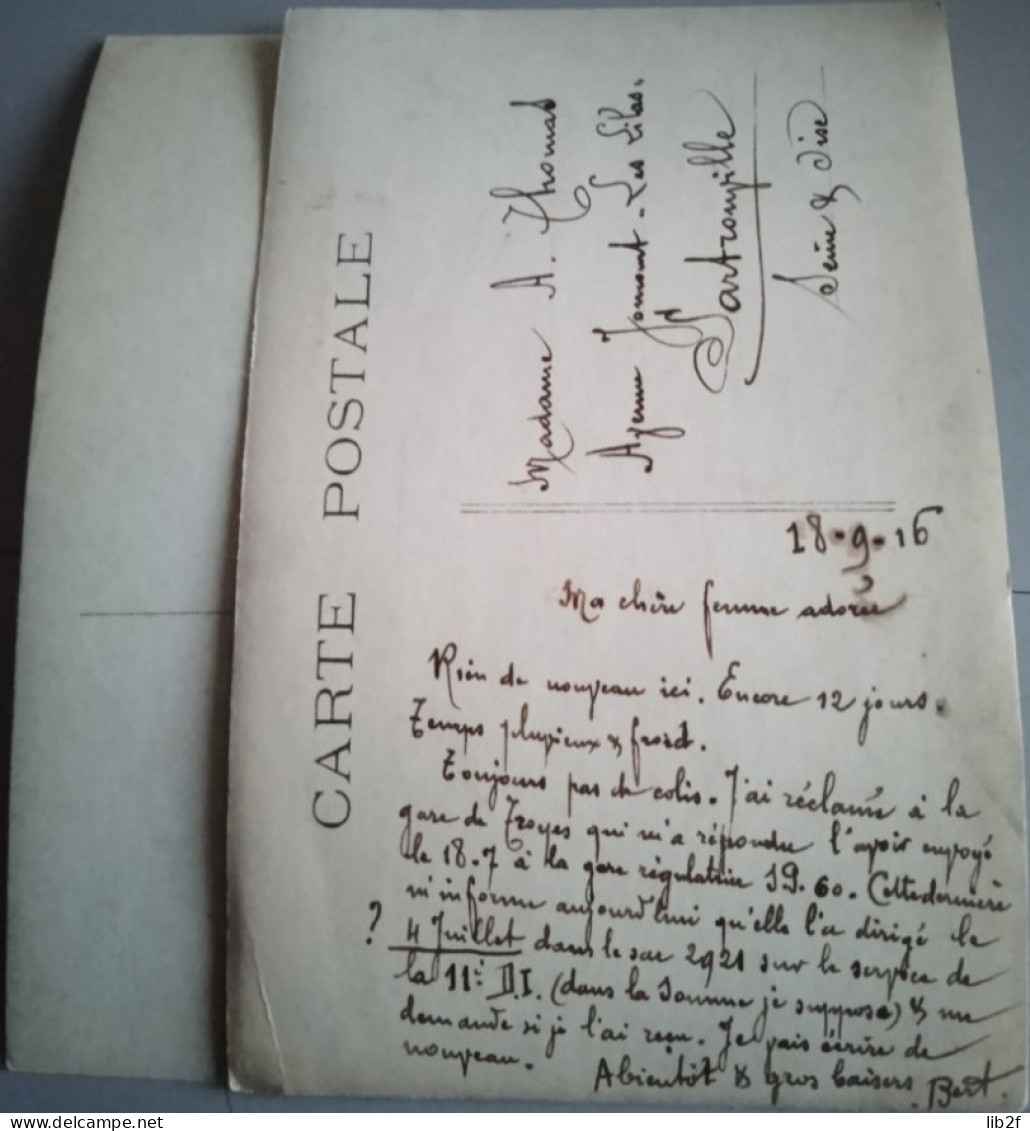 CARTE POSTALE
Madame A. Thomas
Avenue Jomont - Les Lilas.
Sartrouville
Seine & Oise
18-9-16
Ma chère femme adorée
Rien de nouveau ici. Encore 12 jours.
Temps pluvieux & froid.
Toujours pas de colis. J'ai réclamé à la
gare de Troyes qui m'a répondu l'avoir envoyé
le 18-7 à la gare régulatrice 19.60. Cette dernière
m'informe aujourd'hui qu'elle l'a dirigé le
? 4 Juillet dans le sac 2921 sur le service de
la 11e D.I. (dans la Somme je suppose) & me
demande si je l'ai reçu. Je vais écrire de
nouveau.
A bientôt & gros baisers
Bert.
lib2f